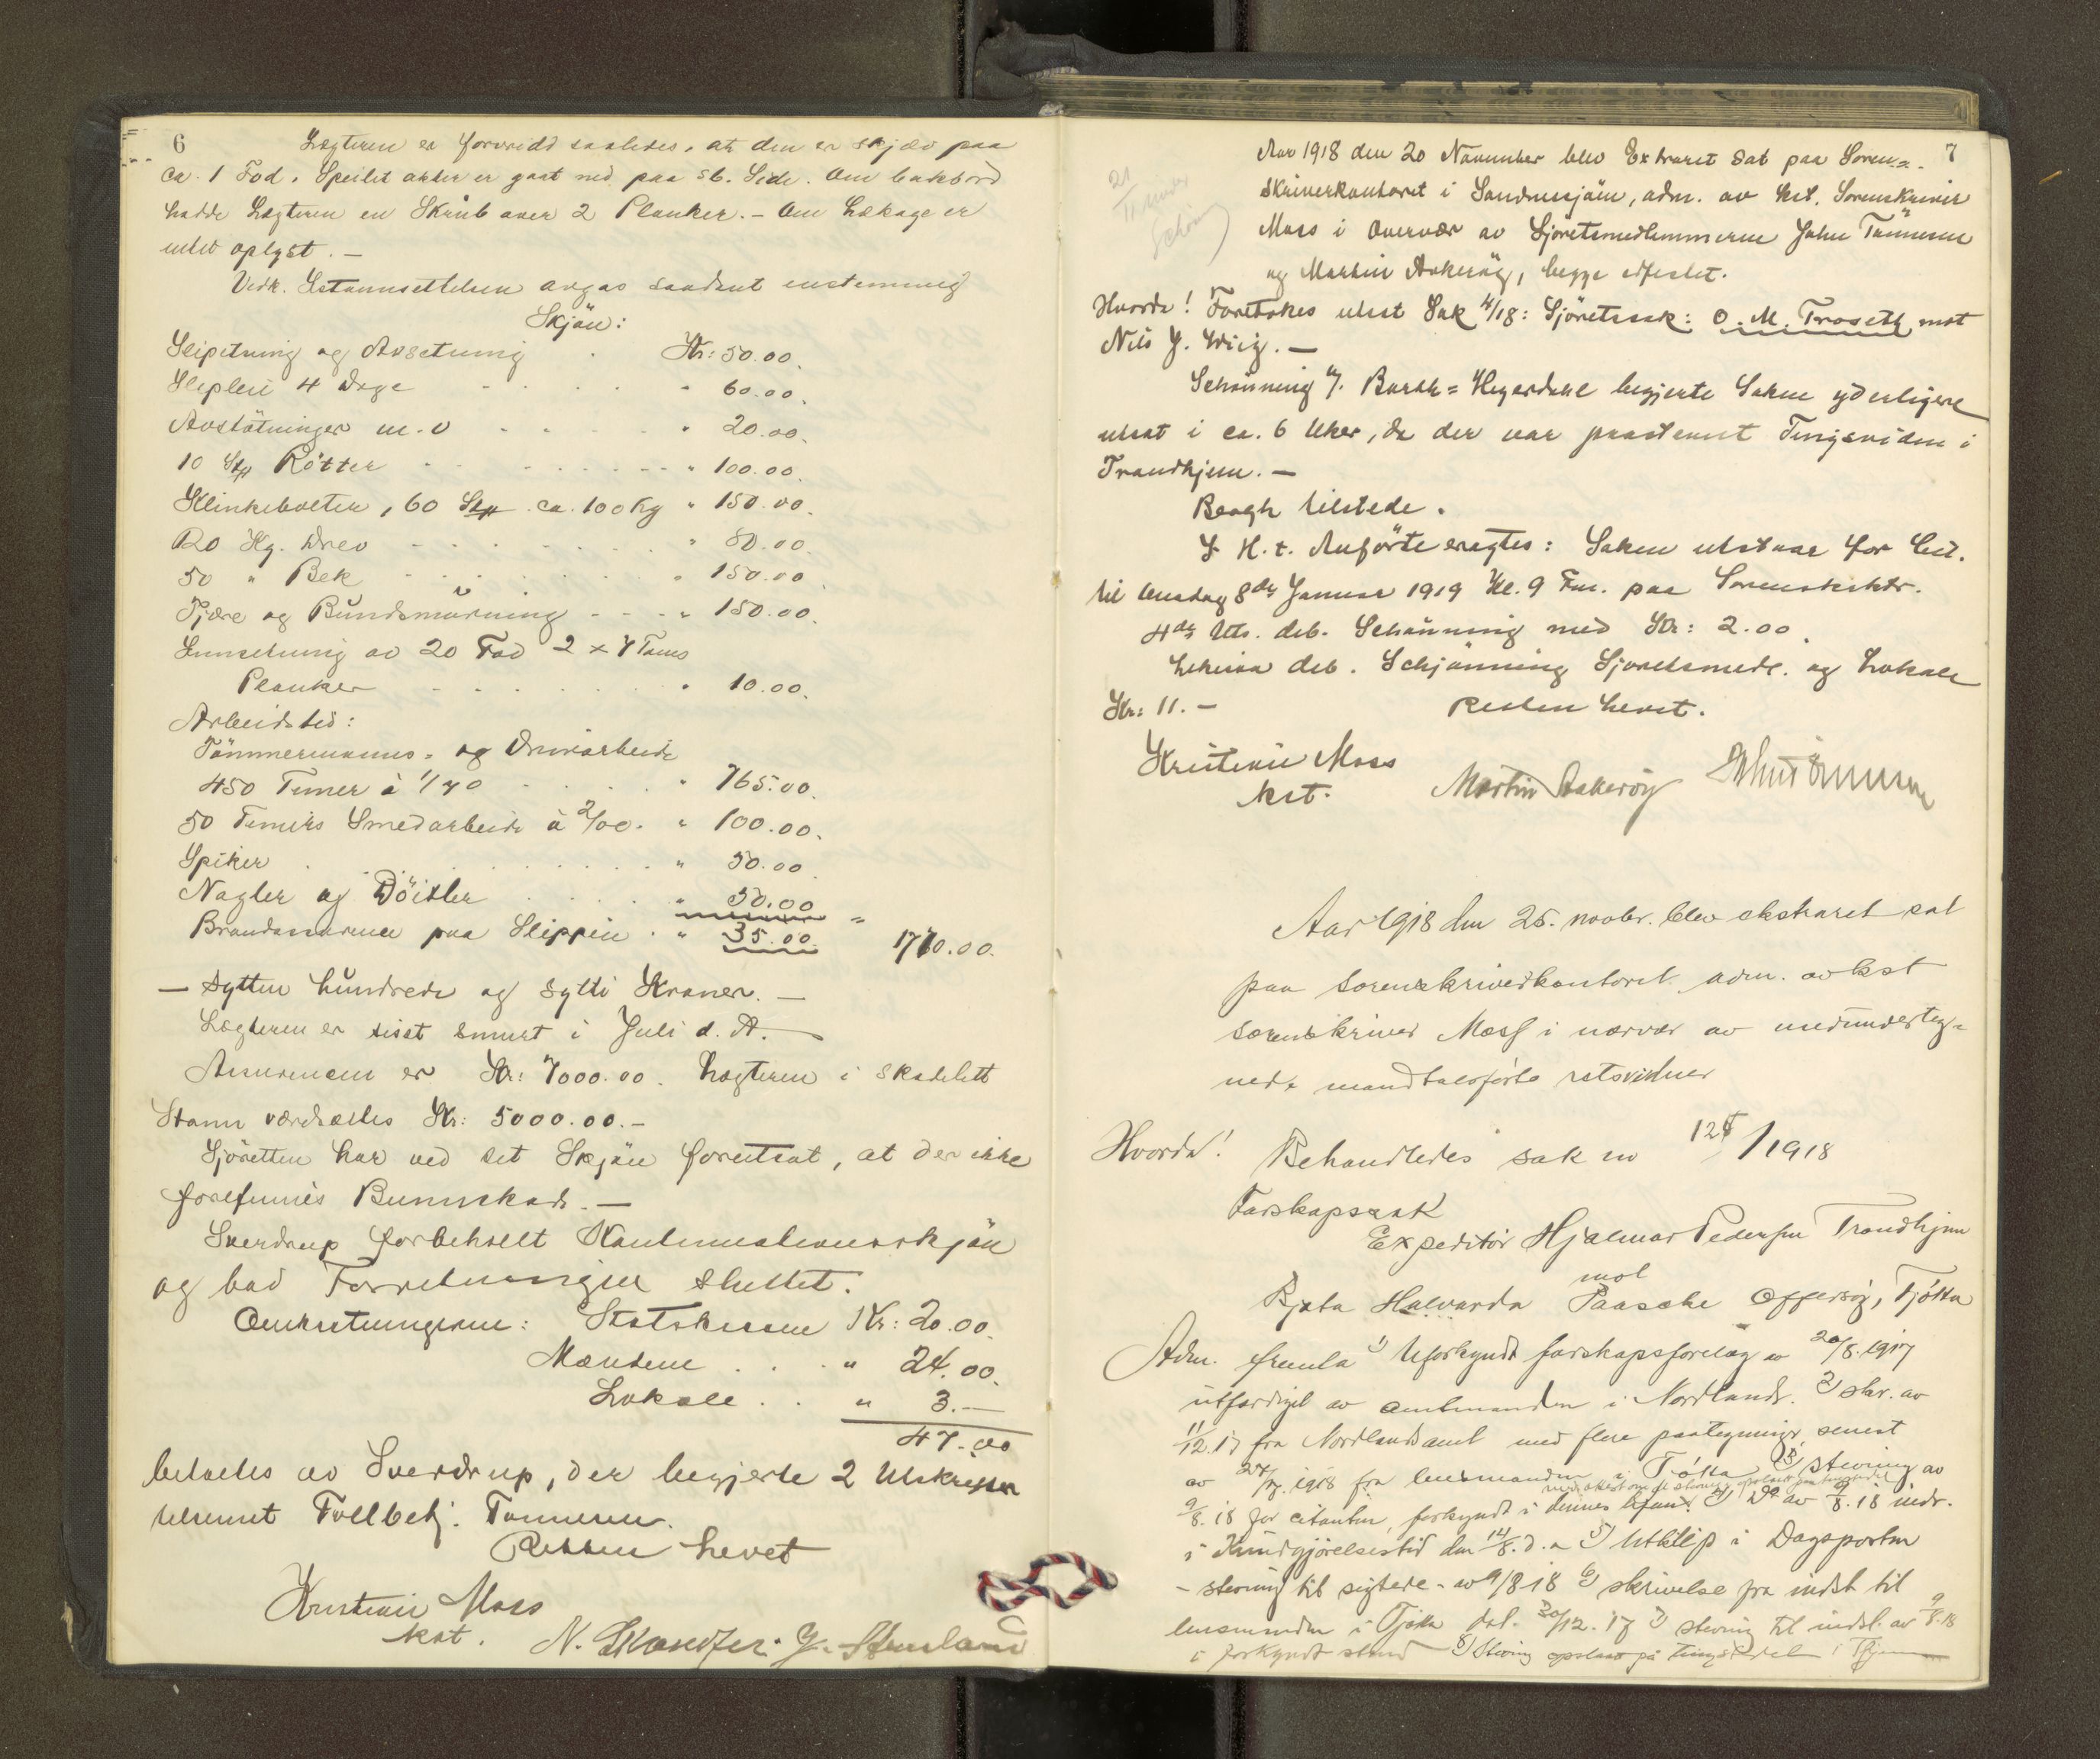 6
Lægteren er forvridd saaledes, at den er skjæv paa
ca. 1 Fod. Speilet akter er gaat ned paa Sb. Side. Om bakbord
hadde Lægteren en Skrub over 2 Planker. – Om Lækage er
intet oplyst. –
Vedk. Istannsettelsen avgas saadant enstemmig
Skjön:
Slipsetning og Avsetning . Kr: 50.00.
Slipleie 4 Dage . . . " 60.00.
Avstötninger m.v . . . " 20.00.
10 Stk Rötter . . . " 100.00.
Klinkebolter, 60 Stk ca. 100 Kg " 150.00.
20 Kg. Drev . . . " 80.00.
50 " Bek . . . " 150.00.
Tjære og Bundsmurning . . . " 150.00.
Innsetning av 20 Fod 2 x 7 Toms
Planker . . . " 10.00.
Arbeidsled:
Tömmermanns- og Drivarbeide
450 Timer à 1/70 . . . " 765.00.
50 Timers Smedarbeide à 2/00. " 100.00.
Spiker . . . " 50.00
Nagler og Döitler . . . " 50.00
Brandassurance paa Slippen . " 35.00. 1770.00.
– Sytten hundrede og sytti Kroner. –
Lægteren er sisst smurt i Juli d. A. –
Assurancen er Kr: 7000.00. Lægteren i skadelitt
Stann værdsættes Kr: 5000.00. –
Sjöretten har ved det Skjön forutsat, at der ikke
forefinnes Bunnskade. –
Sverdrup forbeholdt Kontinuationsskjön
og bad Forretningen sluttet.
Omkostningerne: Statskassen Kr: 20.00.
Mændene . . . " 24.00.
Lokale . . " 3.–
47.00
betaltes av Sverdrup, der begjerte 2 Utskrifter
tilsennt Tollbetj. Tönnesen.
Retten hevet
Kristenie Moss
kst. N. Skandfer. J. Stensland
7
21
Schön
Aar 1918 den 20 November blev Extraret sat paa Soren=
skriverkontoret i Sandnessjöen, adm. av kst. Sorenskriver
Moss i Overvær av Sjöretsmedlemmerne Johu Tönnesen
og Martin Aakeröy, begge edfestet.
Hvorda! Foretokes utsat Sak 4/18: Sjöretssak: O. M. Traseth mot
Nils J. Wiig. –
Schönning f. Barth=Heyerdahl begjerte Saken yderligere
utsat i ca. 6 Uker, da der var paastevnt Tingsvidne i
Trondhjem. –
Bergh tilstede.
I H. t. Anförte eragtes: Saken utstaar for tid.
til Onsdag 8de Januar 1919 Kl. 9 Fm. paa Sorenskrktr.
4de Uts. deb. Schönning med Kr: 2.00.
Likesaa deb. Schjönning Sjöretsmedl. og Lokale
Kr: 11.– Retten hevet.
Kristenie Moss
kst. Martin Aakeröy Johu Tönnesen
Aar 1918 den 25. novbr. blev ekstraret sat
paa sorenskriverkontoret adm. av kst
sorenskriver Moss i nærvær av medunderteg-
nede mandtalsförte retsvidner
Hvorda! Behandledes sak no 12 /1918
Farskapssak
Expeditör Hjalmar Pedersen Trondhjem
mot
Bjata Halvarda Paasche Offersöy, Tjötta
Adm. fremla 1) Uforkyndt farskapsforelæg av 20/8.1917
utfærdiget av amtmanden i Nordland. 2) skr. av
11/12.17 fra Nordlands amt med flere paategninger, senest
av 24/7.1918 fra lensmanden i Tjötta 3) stevning av
9/8.18 for citanten, forkyndt i dennes 4) Do av 9/8.18 indr.
i Kundgjörelsestid den 14/8. d. a 5) Utklip i Dagsposten
– stevning til sigtede – av 9/8 18 6) skrivelse fra indst til
lensmanden i Tjötta dat. 20/12.17 7) stevning til indst. av 9/8.18
i forkyndt stand 8) Stevning opslaat på tingstedet i